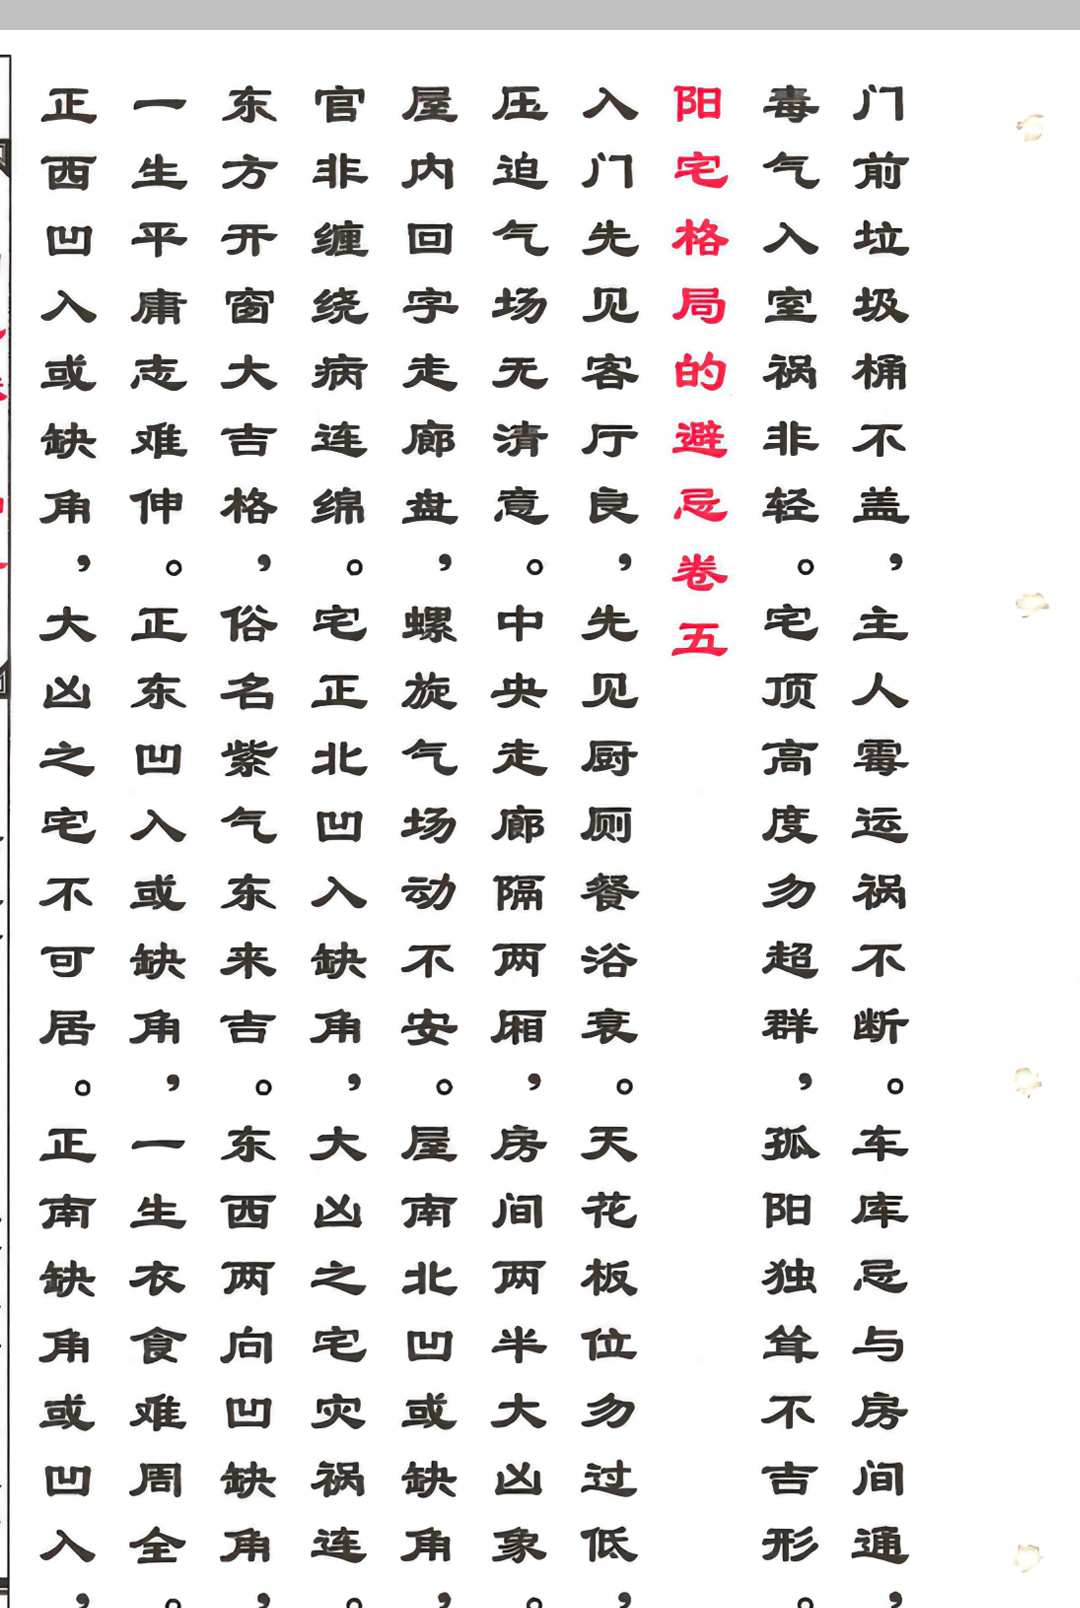 门前垃圾桶不盖，主人霉运祸不断。车库忌与房间通，
毒气入室祸非轻。宅顶高度勿超群，孤阳独耸不吉形。
阳宅格局的避忌卷五
入门先见客厅良，先见厨厕餐浴衰。天花板位勿过低，
压迫气场无清意。中央走廊隔两厢，房间两半大凶象。
屋内回字走廊盘，螺旋气场动不安。屋南北凹或缺角，
官非缠绕病连绵。宅正北凹入缺角，大凶之宅灾祸连。
东方开窗大吉格，俗名紫气东来吉。东西两向凹缺角，
一生平庸志难伸。正东凹入或缺角，一生衣食难周全。
正西凹入或缺角，大凶之宅不可居。正南缺角或凹入，